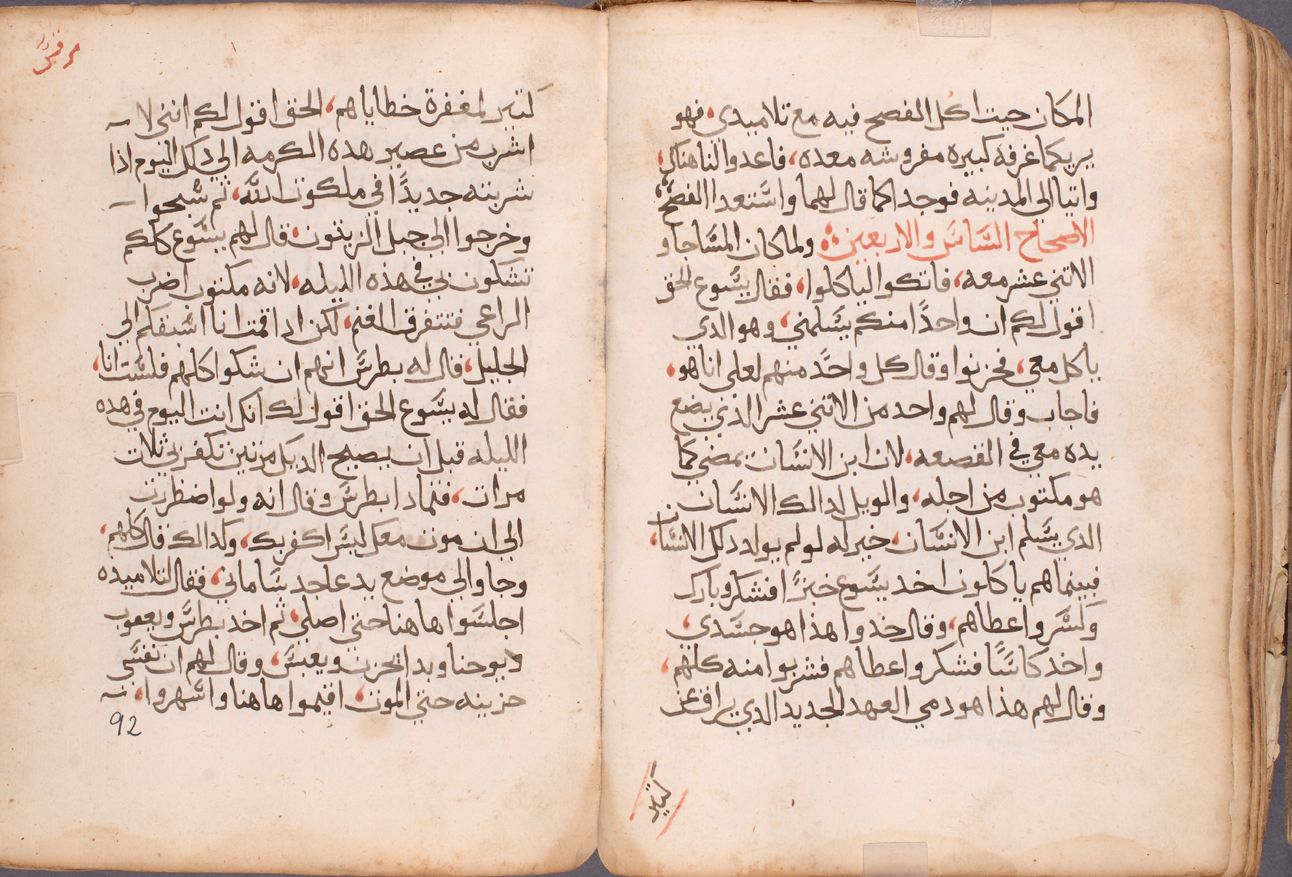 المكان حيت اكل الفصح فيه مع تلاميدي، فهو
يريكما غرفه كبيره مفروشه معده، فاعدوا لنا هناك،
واتيا الى المدينه فوجدا كما قال لهما واستعدا الفصح
الاصحاح السادس والاربعين ولما كان المسا جا و
الاتني عشر معه، فاتكوا لياكلوا، فقال يسوع الحق
اقول لكم ان واحدًا منكم يسلمني، وهو الدي
ياكل معي، فحزنوا وقال كل واحد منهم لعلي انا هو،
فاجاب وقال لهم واحد من الاتني عشر الدي يضع
يده معي في القصعه، لان ابن الانسان يمضي كما
هو مكتوب من اجله، والويل لدالك الانسان
الدي يسلم ابن الانسان، خير له لو لم يولد دلك الانسان،
فبينما هم ياكلون اخد يسوع خبزًا فشكر وبارك
وكسر واعطاهم، وقال خدوا هذا هو جسدي،
واخد كاسًا فشكر واعطاهم فشربوا منه كلهم،
وقال لهم هذا هو دمي العهد الجديد الدي يراق عن
كتير
مرقس
كتير لمغفرة خطاياهم، الحق اقول لكم انني لا
اشرب من عصير هده الكرمه الى دلك اليوم ادا
شربته جديدًا في ملكوت الله، تم سبحوا
وخرجوا الى جبل الزيتون، قال لهم يسوع كلكم
تشكون بي في هذه الليله، لانه مكتوب اضرب
الراعي فتتفرق الغنم، لكن ادا قمت انا اسبقكم الى
الجليل، قال له بطرس انهم ان شكوا كلهم فلست انا،
فقال له يسوع الحق اقول لك انك انت اليوم في هده
الليله قبل ان يصيح الديك مرتين تكفر بي تلات
مرات، فتمادا بطرس وقال انه ولو اضطررت
الى ان موت معك ليس اكفر بك، وكدالك قال كلهم،
وجاوا الى موضع يدعا جد سماني، فقال لتلاميده
اجلسوا هاهنا حتي اصلي، تم اخد بطرس ويعقوب
ويوحنا وبدا يحزن ويعبس، وقال لهم ان نفسي
حزينه حتي الموت، اقيموا هاهنا واسهروا،
92